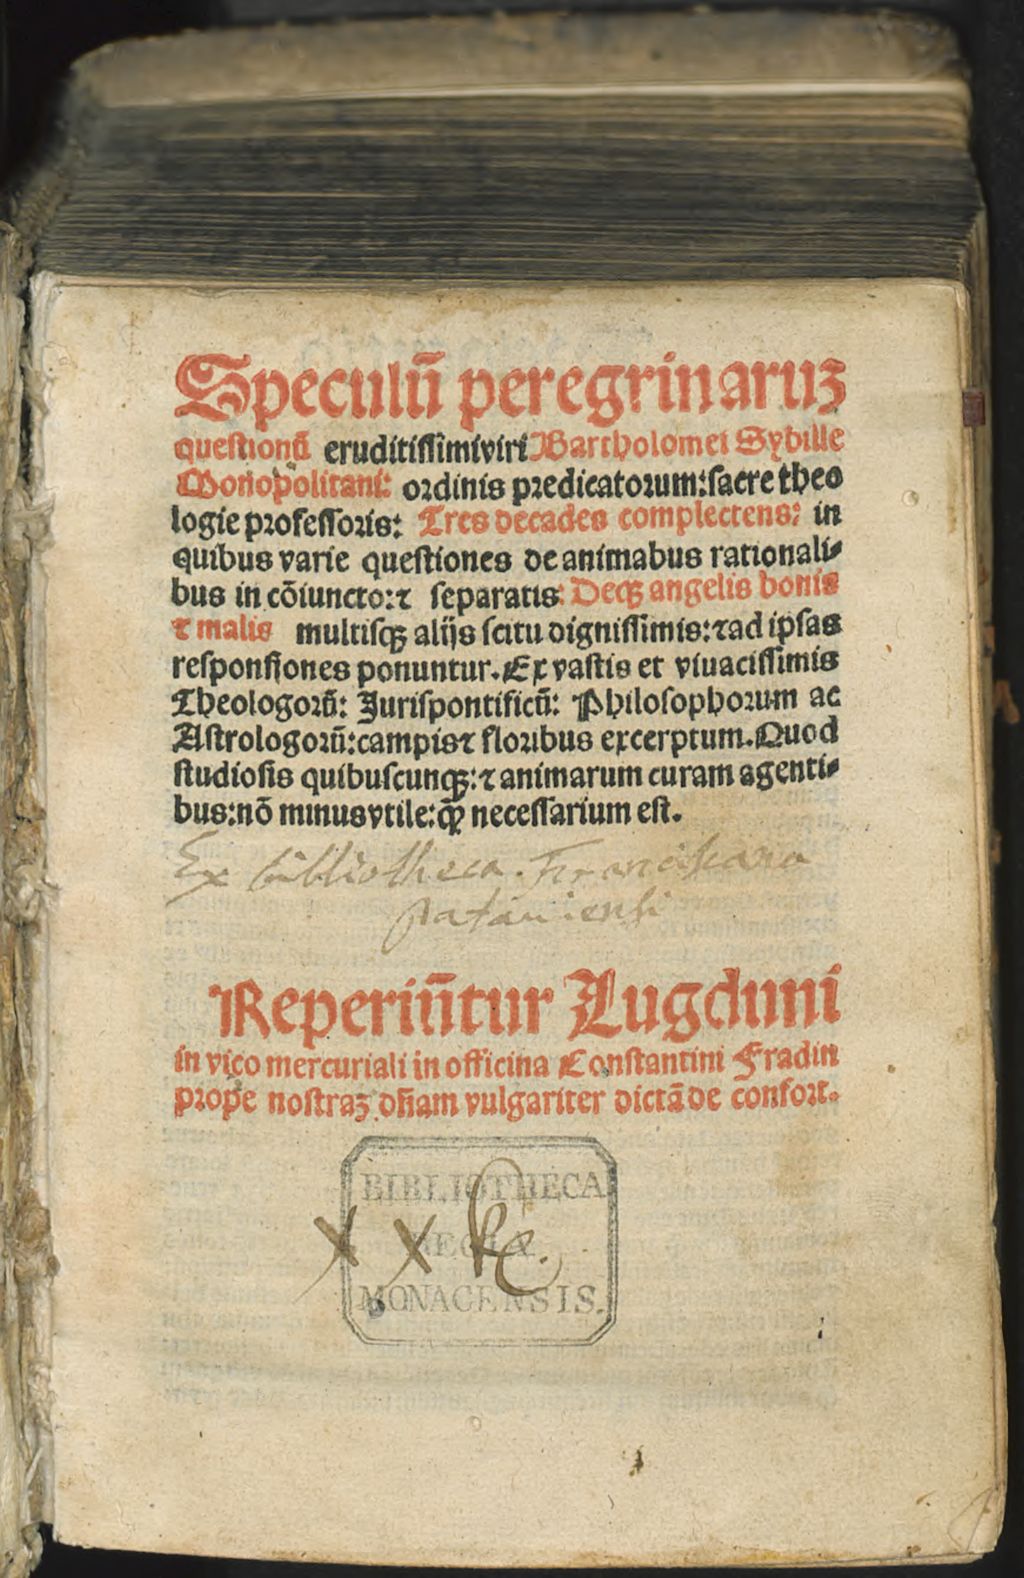 Speculū peregrinaruꝫ
questionū eruditissimi viri Bartholomei Sybille
Monopolitani: ordinis predicatorum: sacre theo
logie professoris: Tres decades complectens: in
quibus varie questiones de animabus rationali⸗
bus in cōiuncto: ⁊ separatis: Deqꝫ angelis bonis
⁊ malis multisqꝫ alijs scitu dignissimis: ⁊ ad ipsas
responsiones ponuntur. Ex vastis et viuacissimis
Theologorū: Jurispontificū: Philosophorum ac
Astrologorū: campis ⁊ floribus excerptum. Quod
studiosis quibuscunqꝫ: ⁊ animarum curam agenti⸗
bus: nō minus vtile: qꝫ̄ necessarium est.
Ex bibliotheca. Franciscana
pataviensi
Reperiūtur Lugduni
in vico mercuriali in officina Constantini Fradin
prope nostraꝫ dn̄am vulgariter dictā de confort.
BIBLIOTHECA
REGIA
MONACENSIS.